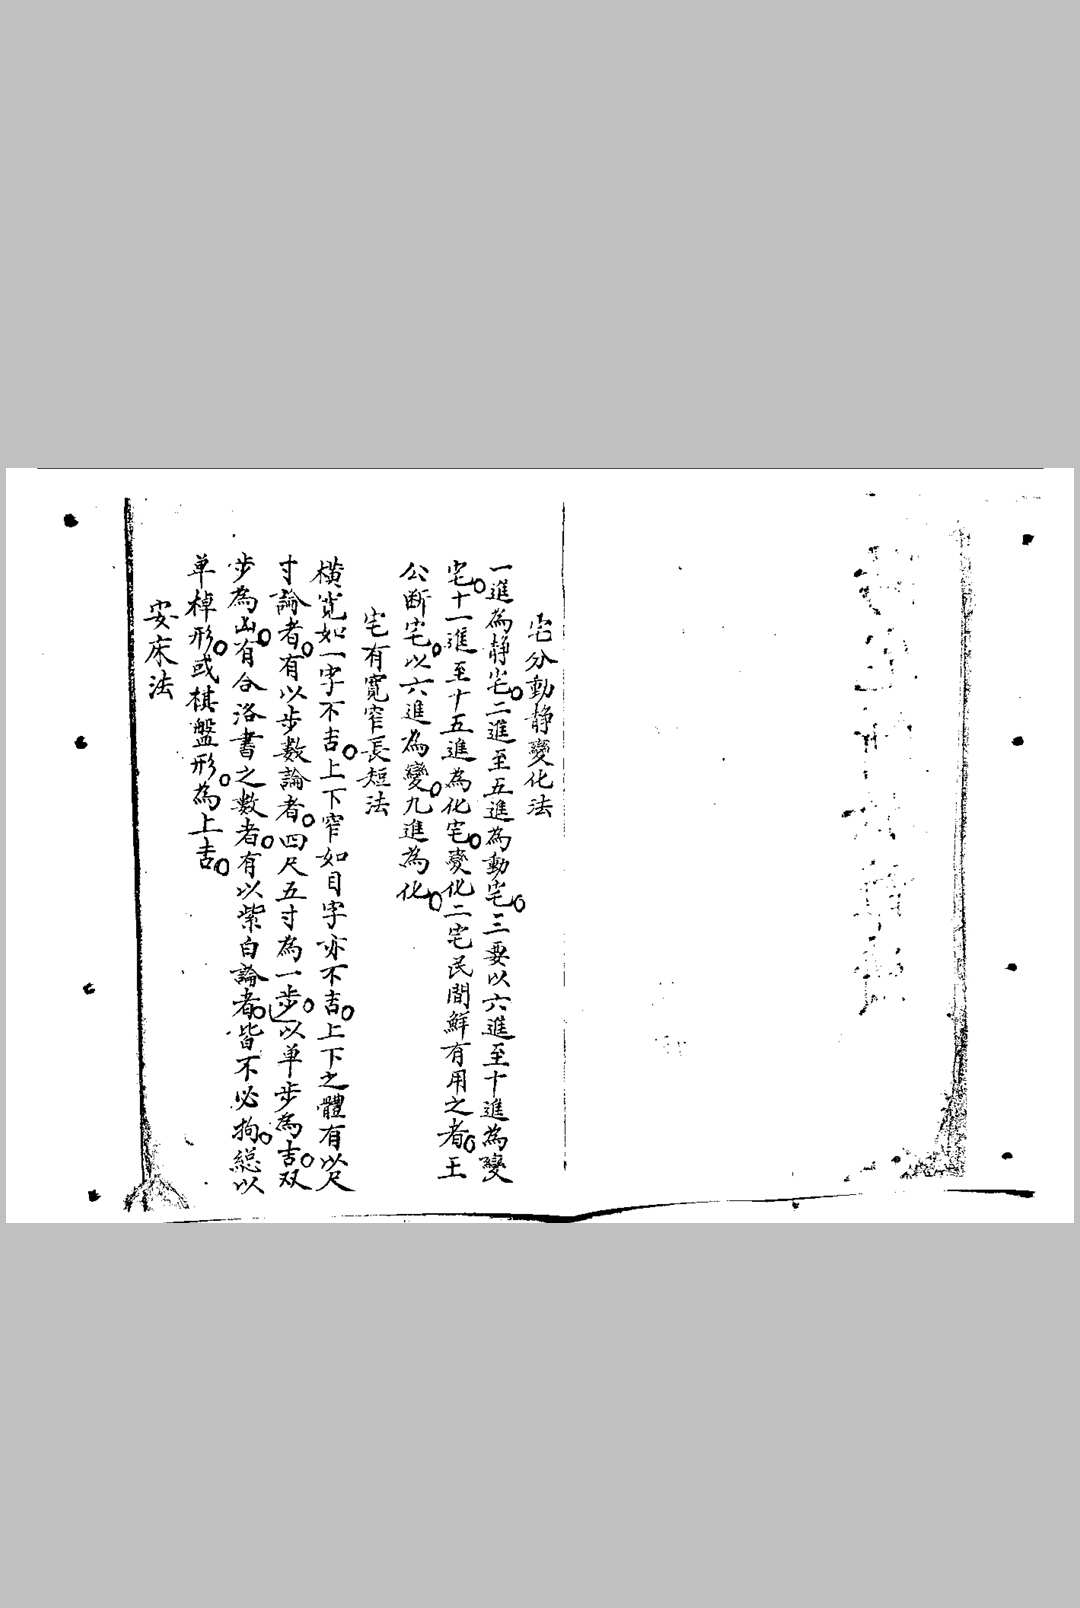 宅分動静變化法
一進為静宅。二進至五進為動宅。三要以六進至十進為變
宅。十一進至十五進為化宅。變化二宅民間鮮有用之者。王
公斷宅。以六進為變。九進為化。
宅有寬窄長短法
橫寬如一字不吉。上下窄如目字亦不吉。上下之體有以尺
寸論者。有以步數論者。四尺五寸為一步。以单步為吉。双
步為凶。有合洛書之數者。有以紫白論者。皆不必拘。総以
单棹形。或棋盤形。為上吉。
安床法